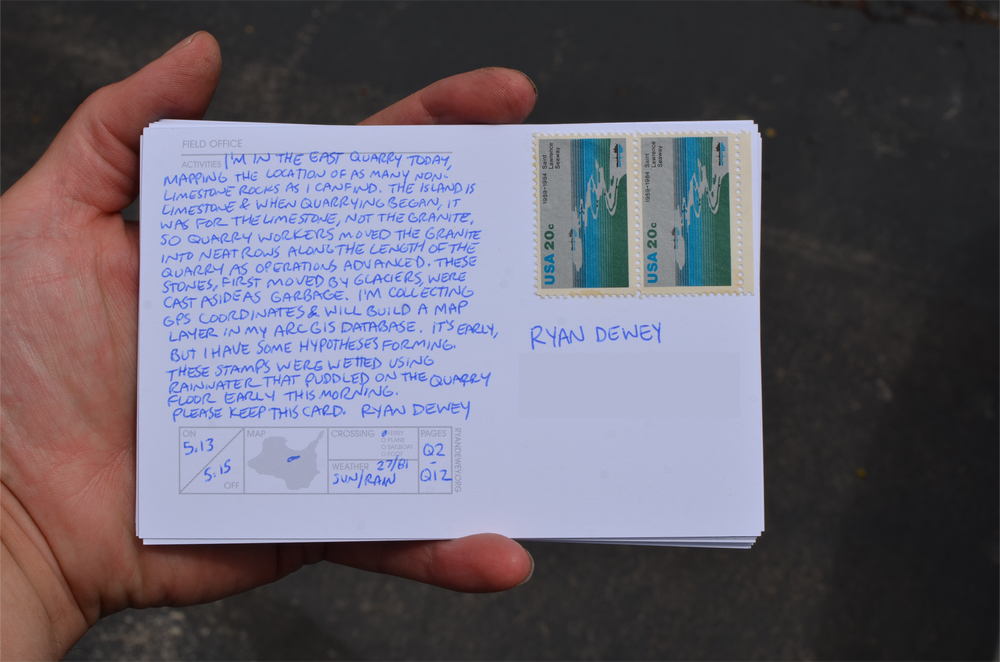 FIELD OFFICE
ACTIVITIES I'M IN THE EAST QUARRY TODAY,
MAPPING THE LOCATION OF AS MANY NON-
LIMESTONE ROCKS AS I CAN FIND. THE ISLAND IS
LIMESTONE & WHEN QUARRYING BEGAN, IT
WAS FOR THE LIMESTONE, NOT THE GRANITE,
SO QUARRY WORKERS MOVED THE GRANITE
INTO NEAT ROWS ALONG THE LENGTH OF THE
QUARRY AS OPERATIONS ADVANCED. THESE
STONES, FIRST MOVED BY GLACIERS, WERE
CAST ASIDE AS GARBAGE. I'M COLLECTING
GPS COORDINATES & WILL BUILD A MAP
LAYER IN MY ARC GIS DATABASE. IT'S EARLY,
BUT I HAVE SOME HYPOTHESES FORMING.
THESE STAMPS WERE WETTED USING
RAINWATER THAT PUDDLED ON THE QUARRY
FLOOR EARLY THIS MORNING.
PLEASE KEEP THIS CARD. RYAN DEWEY
ON
5.13
5.15
OFF
MAP
CROSSING
FERRY
PLANE
SAILBOAT
FOOT
WEATHER 27/81
SUN/RAIN
PAGES
Q2
-
Q12
RYANDEWEY.ORG
1959-1984 Saint
Lawrence
Seaway
USA 20c
1959-1984 Saint
Lawrence
Seaway
USA 20c
RYAN DEWEY